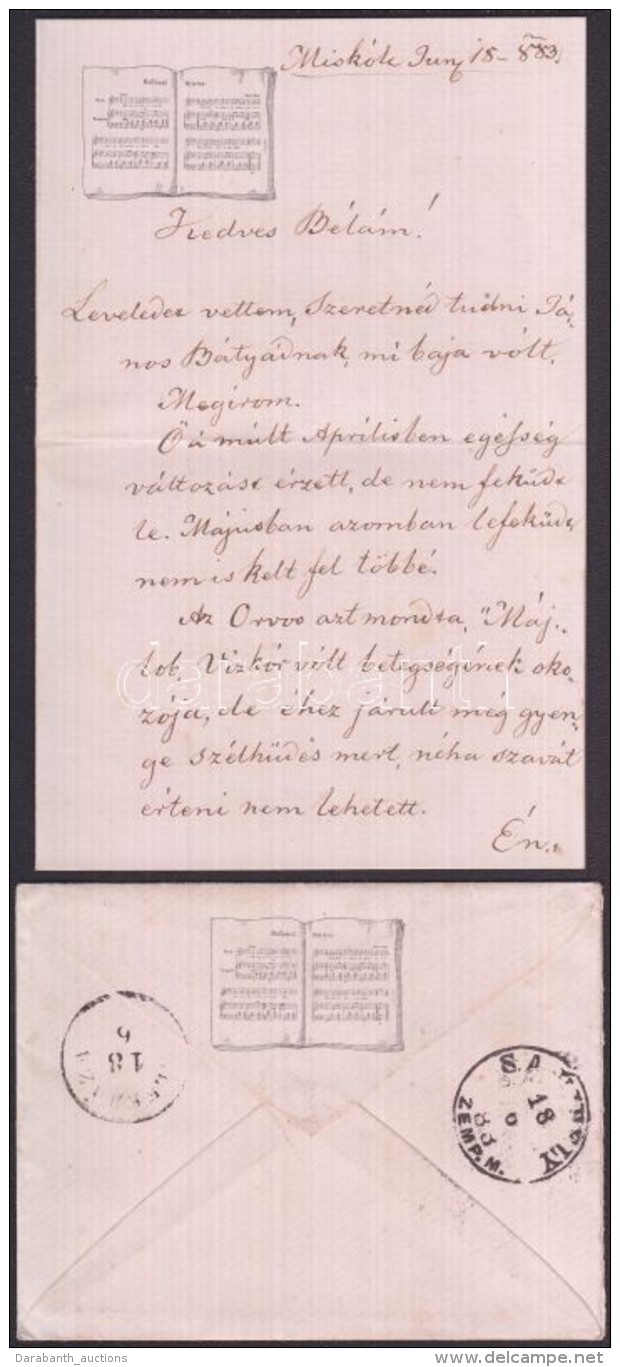 Miskólc Juny 18-883.
Kedves Bélám!
Leveledet vettem, szeretnéd tudni Já-
nos Bátyádnak, mi baja vólt.
Megírom.
Ő á múlt Áprilisben egésség
változást érzett, de nem feküdt
le. Májusban azomban lefeküdt
nem is kelt fel többé.
Az Orvos azt mondta, "Máj-
lob, Vízkór vólt betegségének oko-
zója, de éhez járult még gyen-
ge szélhüdés mert, néha szavát
érteni nem lehetett.
Én.
darabanth
18
S. A. UJHELY
18
6
83
ZEMP. M.
Darabanth_auctions
delcampe.net